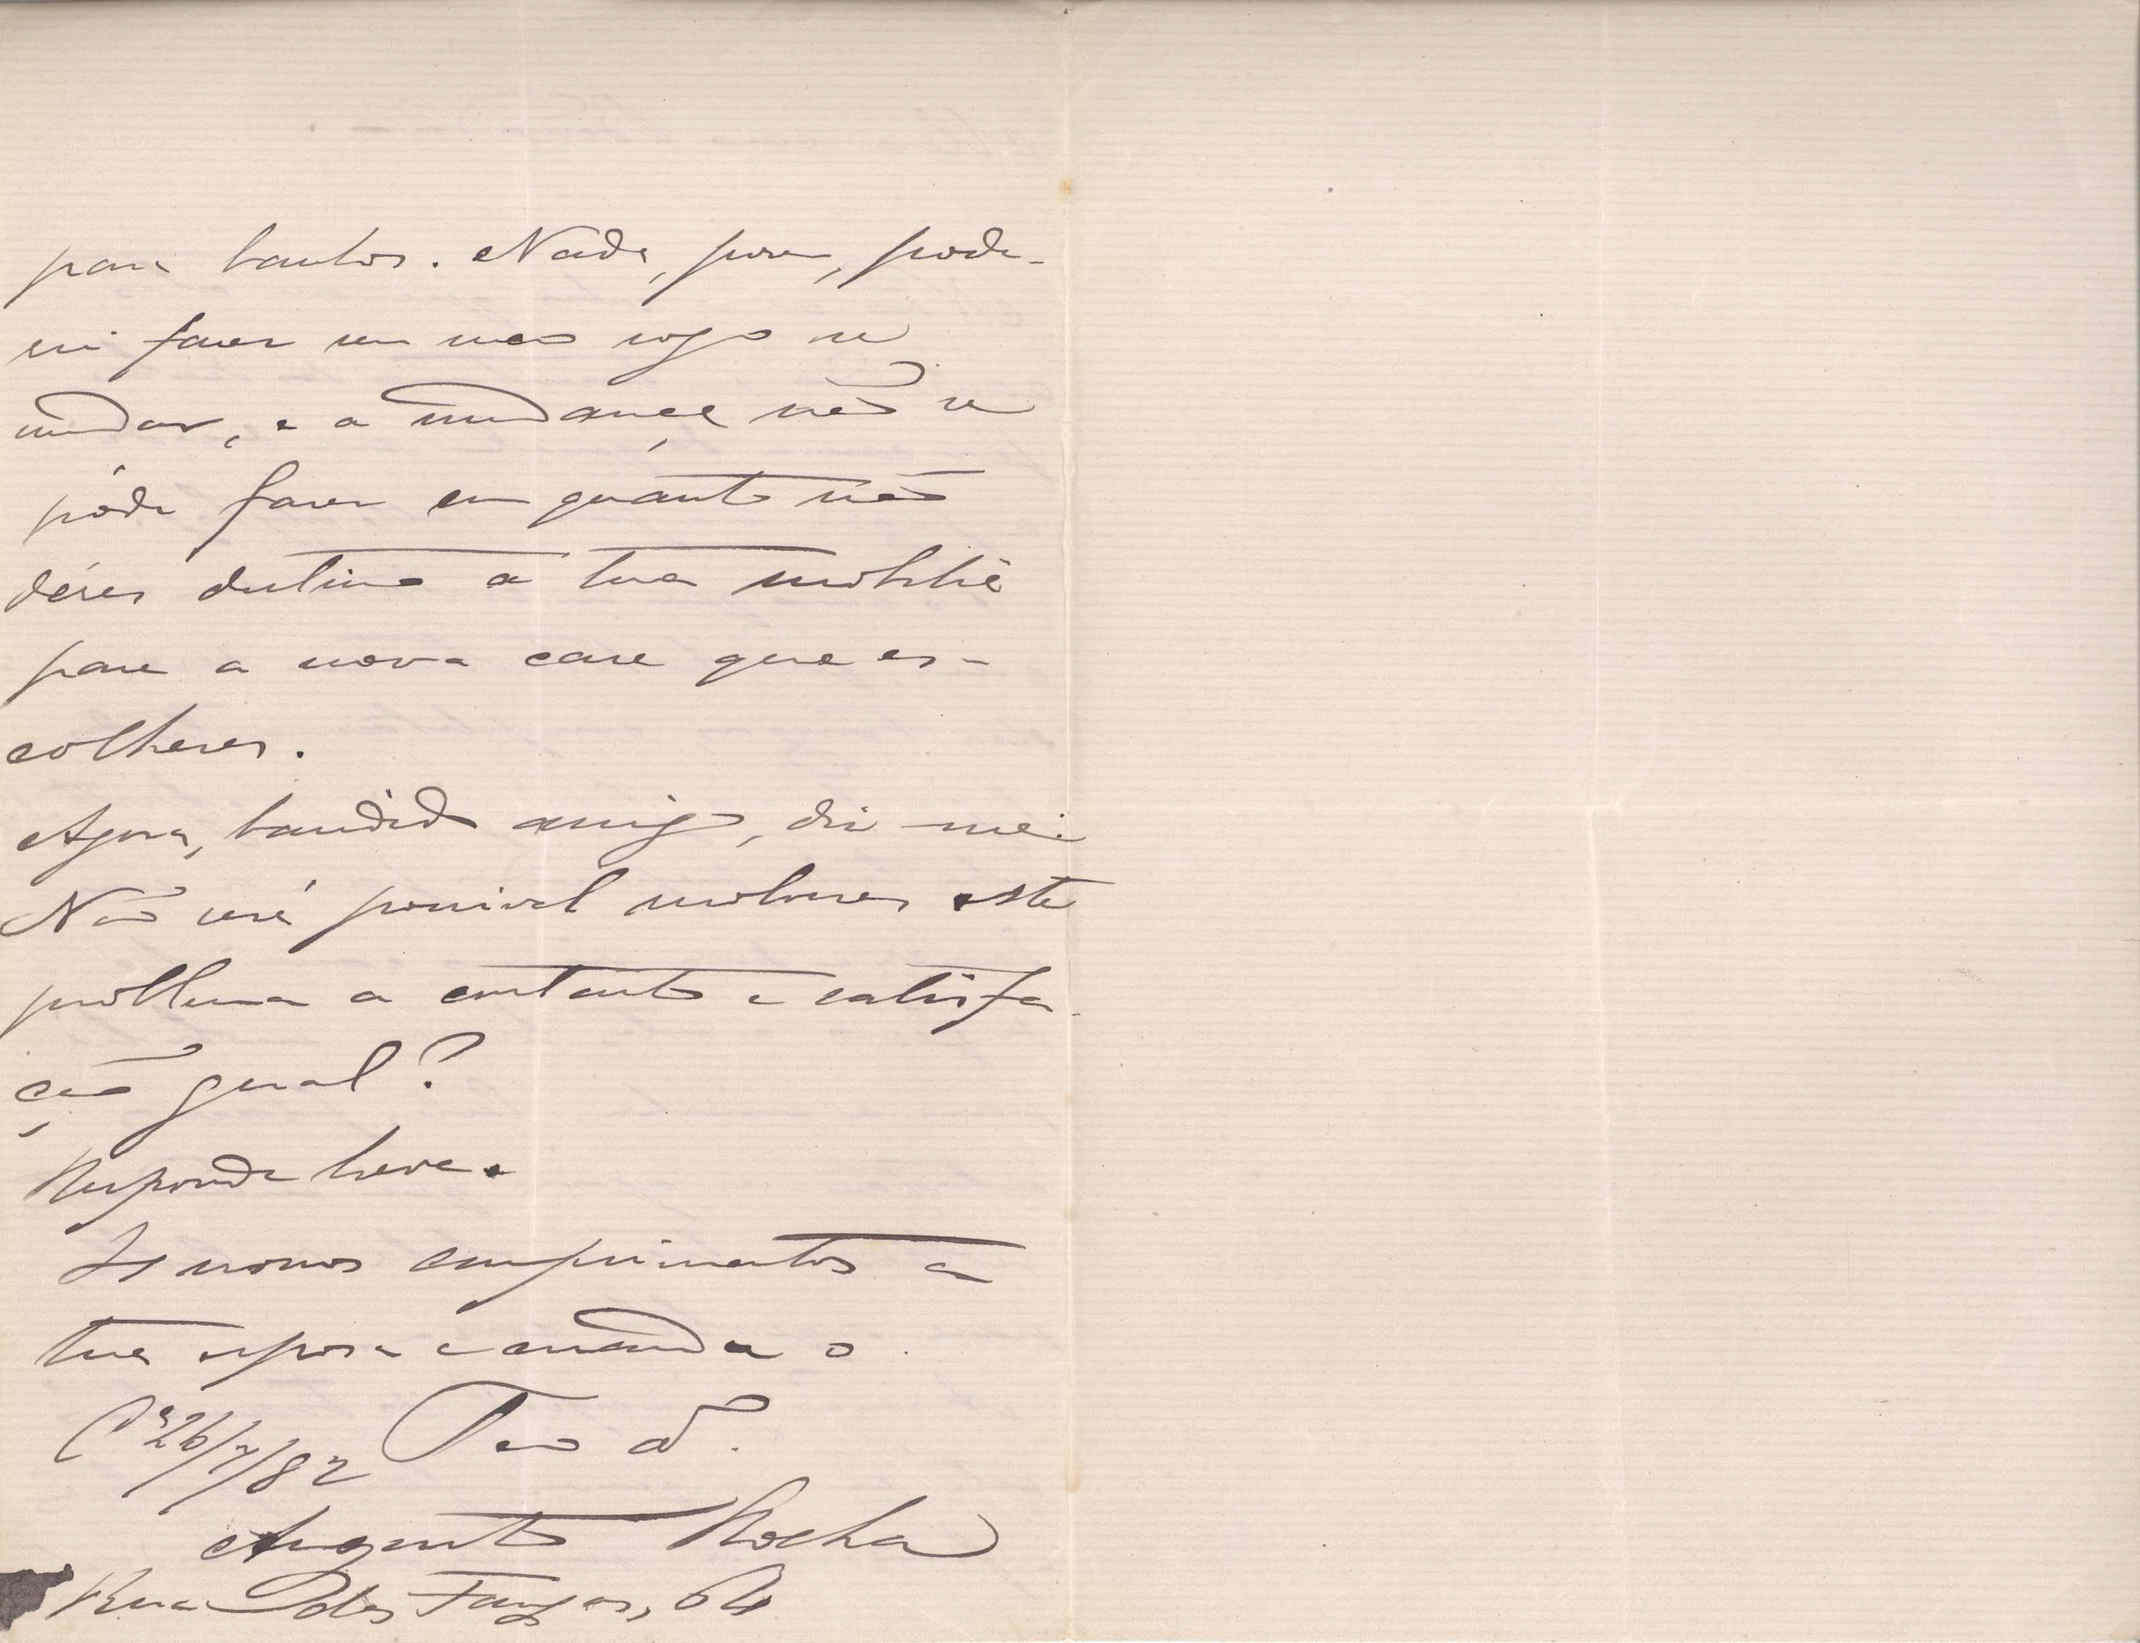 para tantos. Nada, porem, pode-
rei fazer sem meu sogro se
mudar, e a mudança não se
póde fazer em quanto não
déres destino á tua mobilia
para a nova casa que es-
colheres.
Agora, bandido amigo, diz-me:
Não será possivel resolver este
problema a contento e satisfa-
ção geral?
Responde breve.
Os nossos cumprimentos a
tua esposa e manda o
Cª 26/7/82 Teu
Augusto Rocha
Rua dos Fangas, 64